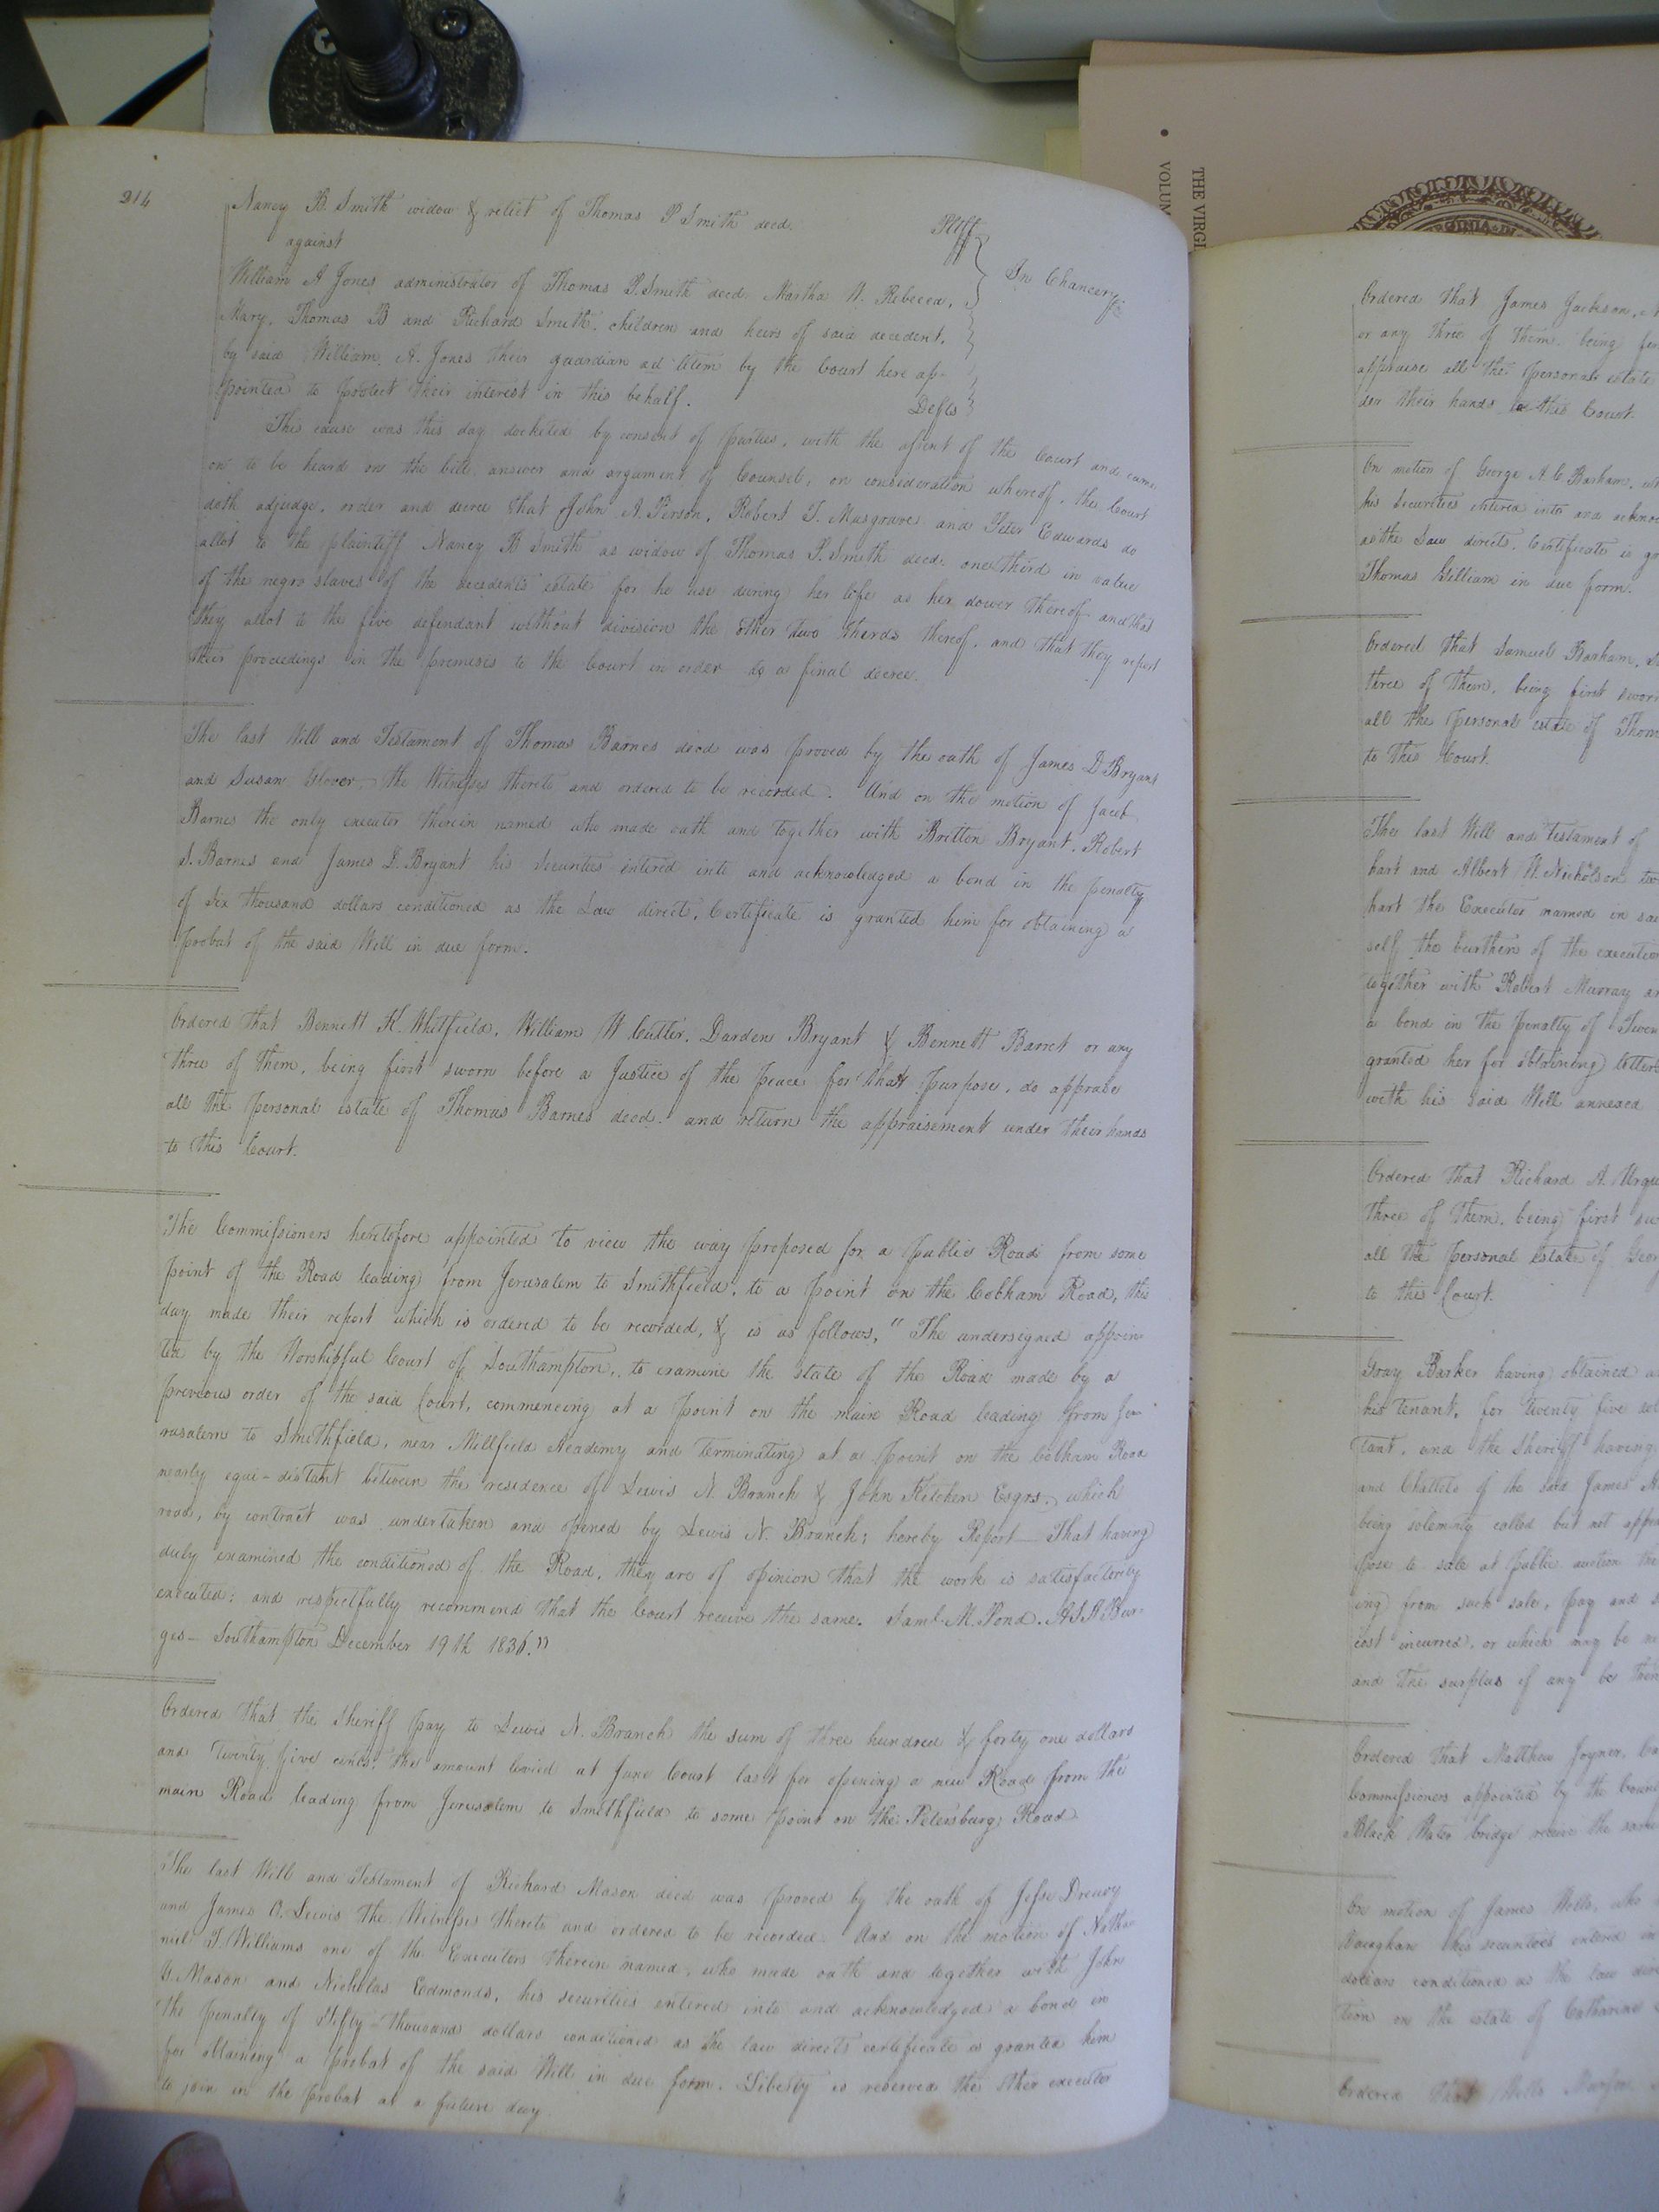 214
Nancy B. Smith widow & relict of Thomas P Smith decd. Pltff
against
In Chancery
William A Jones administrator of Thomas P. Smith decd. Martha W. Rebecca,
Mary, Thomas B and Richard Smith, children and heirs of said decedent,
by said William A. Jones their guardian ad litem by the Court here ap-
pointed to protect their interest in this behalf. Defts
This cause was this day docketed by consent of parties, with the assent of the Court and came
on to be heard on the bill, answer and argument of Counsel, on consideration whereof, the Court
doth adjudge, order and decree that John A. Person, Robert T. Musgrave and Peter Edwards do
allot to the plaintiff Nancy B Smith as widow of Thomas P. Smith decd. one third in value
of the negro slaves of the decedents estate for he use during her life as her dower thereof and that
they allot to the five defendant without division the other two thirds thereof, and that they report
their proceedings in the premises to the Court in order to a final decree.
The last Will and Testament of Thomas Barnes decd was proved by the oath of James D. Bryant
and Susan Glover, the Witnesses thereto and ordered to be recorded. And on the motion of Jacob
Barnes the only executor therein named who made oath and together with Britton Bryant, Robert
S. Barnes and James D. Bryant his securities entered into and acknowledged a bond in the penalty
of six thousand dollars conditioned as the Law direct, Certificate is granted him for obtaining a
probat of the said Will in due form.
Ordered that Bennett K. Whitfield, William W Cutler, Darden Bryant & Bennett Barret or any
three of them, being first sworn before a Justice of the peace for that purpose, do appraise
all the personal estate of Thomas Barnes decd. and return the appraisement under their hands
to this Court.
The Commissioners heretofore appointed to view the way proposed for a public Road from some
point of the Road leading from Jerusalem to Smithfield, to a point on the Cobham Road, this
day made their report which is ordered to be recorded, & is as follows, "The undersigned appoin-
ted by the Worshipful Court of Southampton, to examine the state of the Road made by a
previous order of the said Court, commencing at a point on the main Road leading from Je-
rusalem to Smithfield, near Millfield Academy and terminating at a point on the Cobham Road
nearly equi-distant between the residence of Lewis N. Branch & John Kitchen Esqrs. which
road, by contract was undertaken and opened by Lewis N. Branch; hereby Report — That having
duly examined the conditioned of the Road, they are of opinion that the work is satisfactorily
executed: and respectfully recommend that the Court receive the same. Saml. M. Pond. A.S.H Bur-
ges - Southampton December 19th 1836."
Ordered that the Sheriff pay to Lewis N. Branch the sum of three hundred & forty one dollars
and twenty five cents, the amount levied at June Court last for opening a new Road from the
main Road leading from Jerusalem to Smithfield to some point on the Petersburg Road
The last Will and Testament of Richard Mason decd was proved by the oath of Jesse Drewry
and James O. Lewis the Witnesses thereto and ordered to be recorded. And on the motion of Natha-
niel T. Williams one of the Executors therein named, who made oath and together with John
Y. Mason and Nicholas Edmonds, his securities entered into and acknowledged a bond in
the penalty of Fifty-thousand dollars conditioned as the law directs certificate is granted him
for obtaining a probat of the said Will in due form. Liberty is reserved the other executor
to join in the probat at a future day.
THE VIRGI
VOLUM
Ordered that James Jackson,
or any three of them being
appraise all the personal estate
der their hands to this Court.
On motion of George A. C. Barham,
his securities entered into and
as the Law directs, Certificate is
Thomas Gilliam in due form.
Ordered that Samuel Barham,
three of them, being first sworn
all the personal estate of Thom
to this Court.
The last Will and Testament of
hart and Albert W. Nicholson
hart the Executor named in
self the burthen of the execution
together with Robert Murray
a bond in the penalty of
granted her for obtaining letters
with his said Will annexed
Ordered that Richard A. Urqu
three of them, being first
all the personal estate of Geor
to this Court.
Gray Barker having obtained
his tenant, for twenty five
tant, and the Sheriff having
and Chattels of the said James
being solemnly called but not
pose to sale at public auction the
ing from such sale, pay and
cost incurred, or which may be
and the surplus if any be
Ordered that Matthew Joyner,
Commissioners appointed by the
Black Water bridge receive the same
On motion of James Wills, who
Vaughan his securities entered in
dollars conditioned as the law
tion on the estate of Catharine
Ordered that Mills